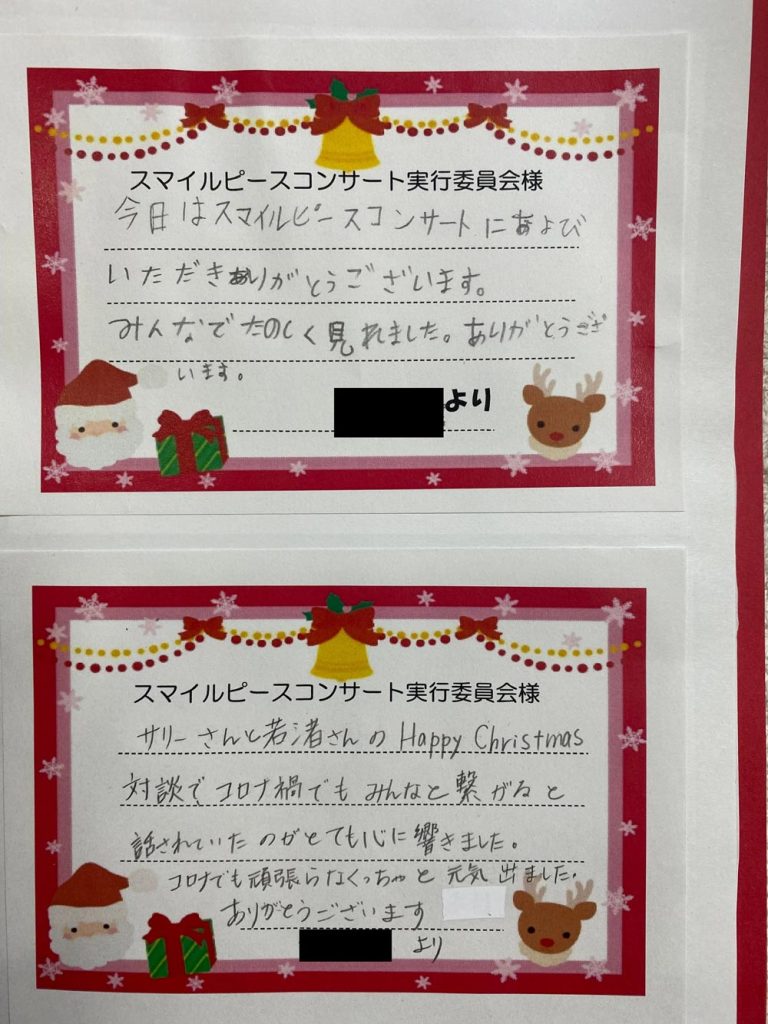 スマイルピースコンサート実行委員会様
今日はスマイルピースコンサートにおよび
いただきありがとうございます。
みんなでたのしく見れました。ありがとうござ
います。
より
スマイルピースコンサート実行委員会様
サリーさんと若渚さんの Happy Christmas
対談でコロナ禍でもみんなと繋がると
話されていたのがとても心に響きました。
コロナでも頑張らなくっちゃと元気出ました.
ありがとうございます
より